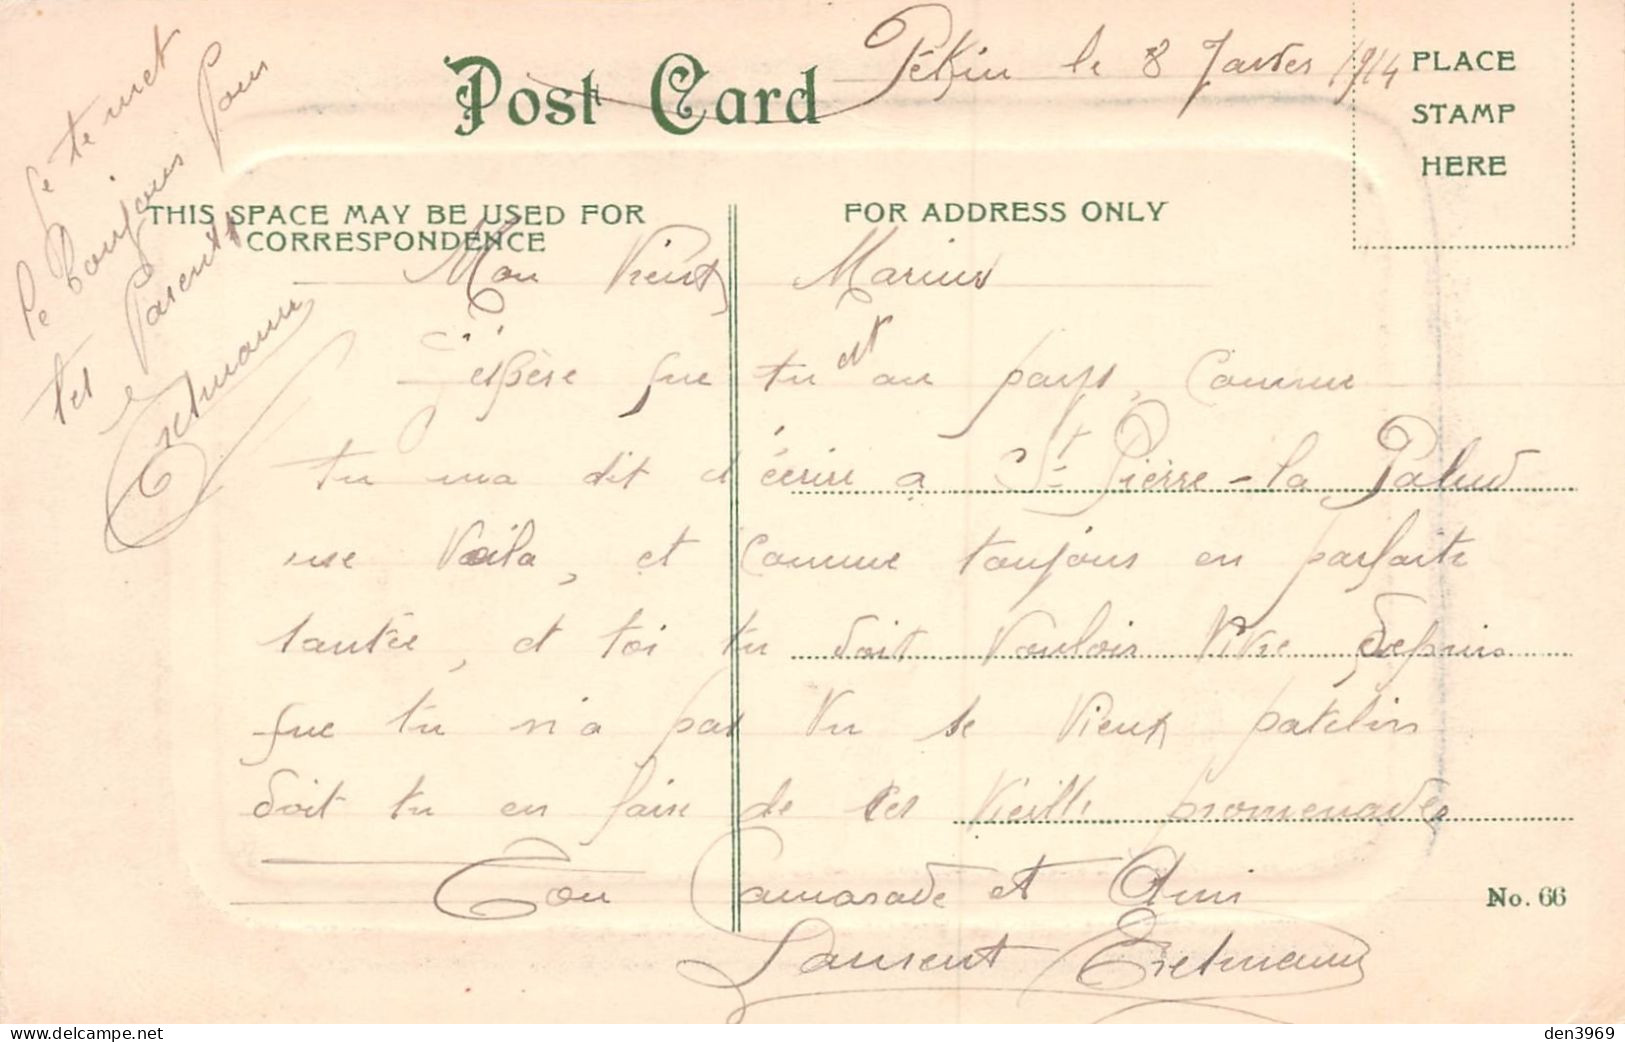 Pékin le 8 Janvier 1914
Post Card
PLACE
STAMP
HERE
THIS SPACE MAY BE USED FOR
CORRESPONDENCE
FOR ADDRESS ONLY
Mon Vieux Marius
J'espère que tu est au pays, Comme
tu ma dit d'écrire a St Pierre-la Palud
me Voila, et comme toujours en parfaite
santée, et toi tu doit Vouloir Vivre depuis
que tu n'a pas Vu se Vieux patelin
doit tu en faire de ses Vieille promenades
Ton Camarade et Ami
Laurent
No. 66
Je te met
le bonjour pour
tes Parents
den3969